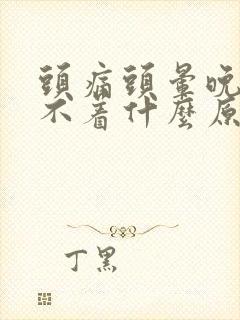 頭痛頭暈晚
不着什麼原
丁黑